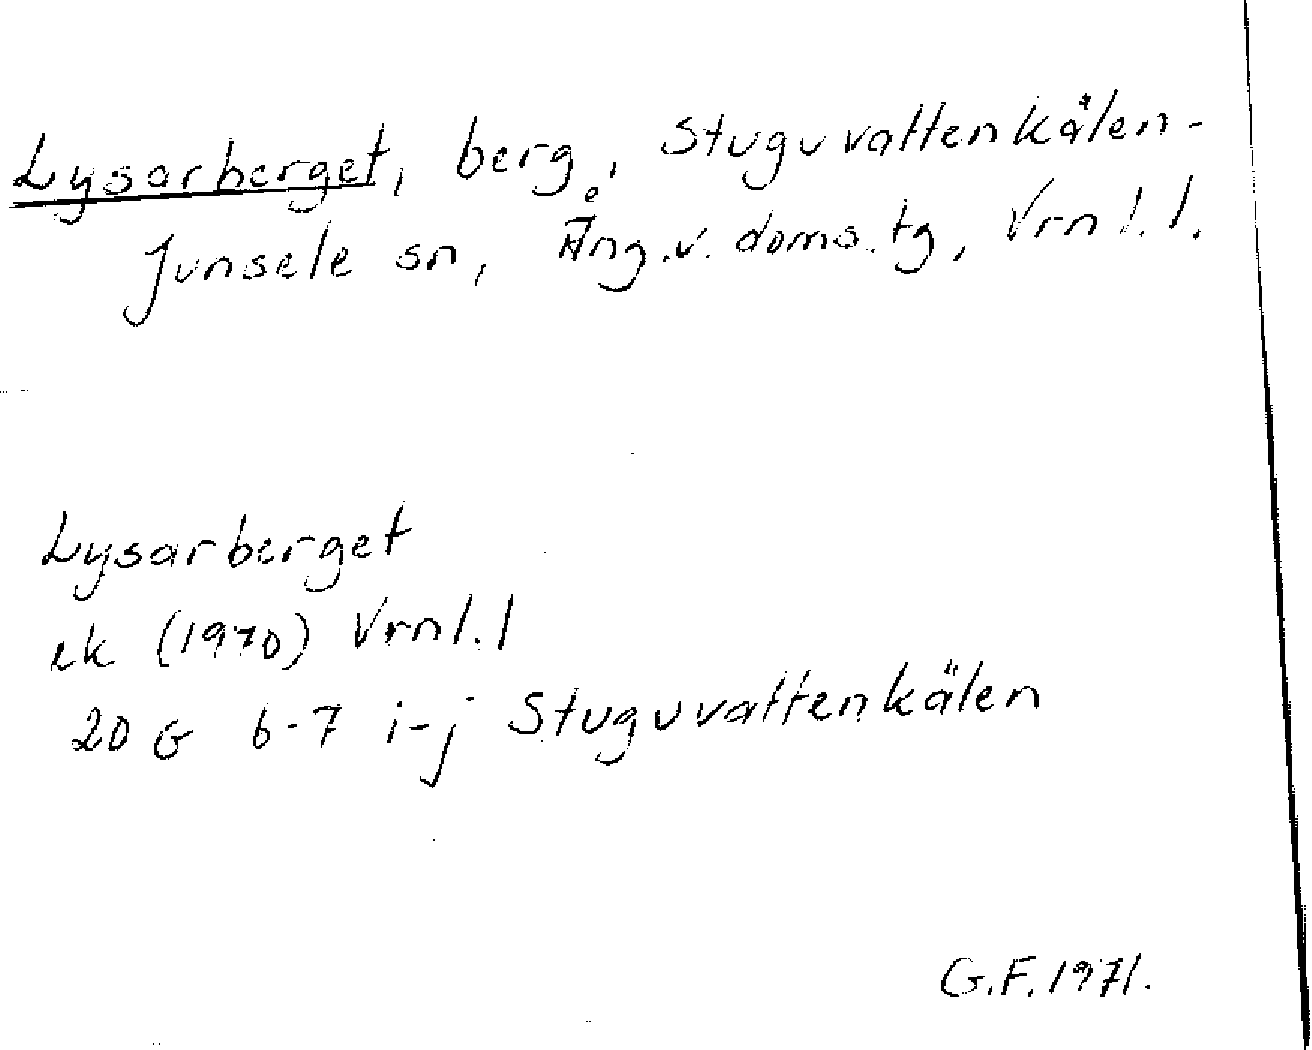 Lysarberget, berg, Stuguvattenkälen-
Junsele sn, Ång.v. doms.tg, Vrnl.l.
Lysarberget
ek (1970) Vrnl.l
20 G 6-7 i-j Stuguvattenkälen
G.F. 1971.